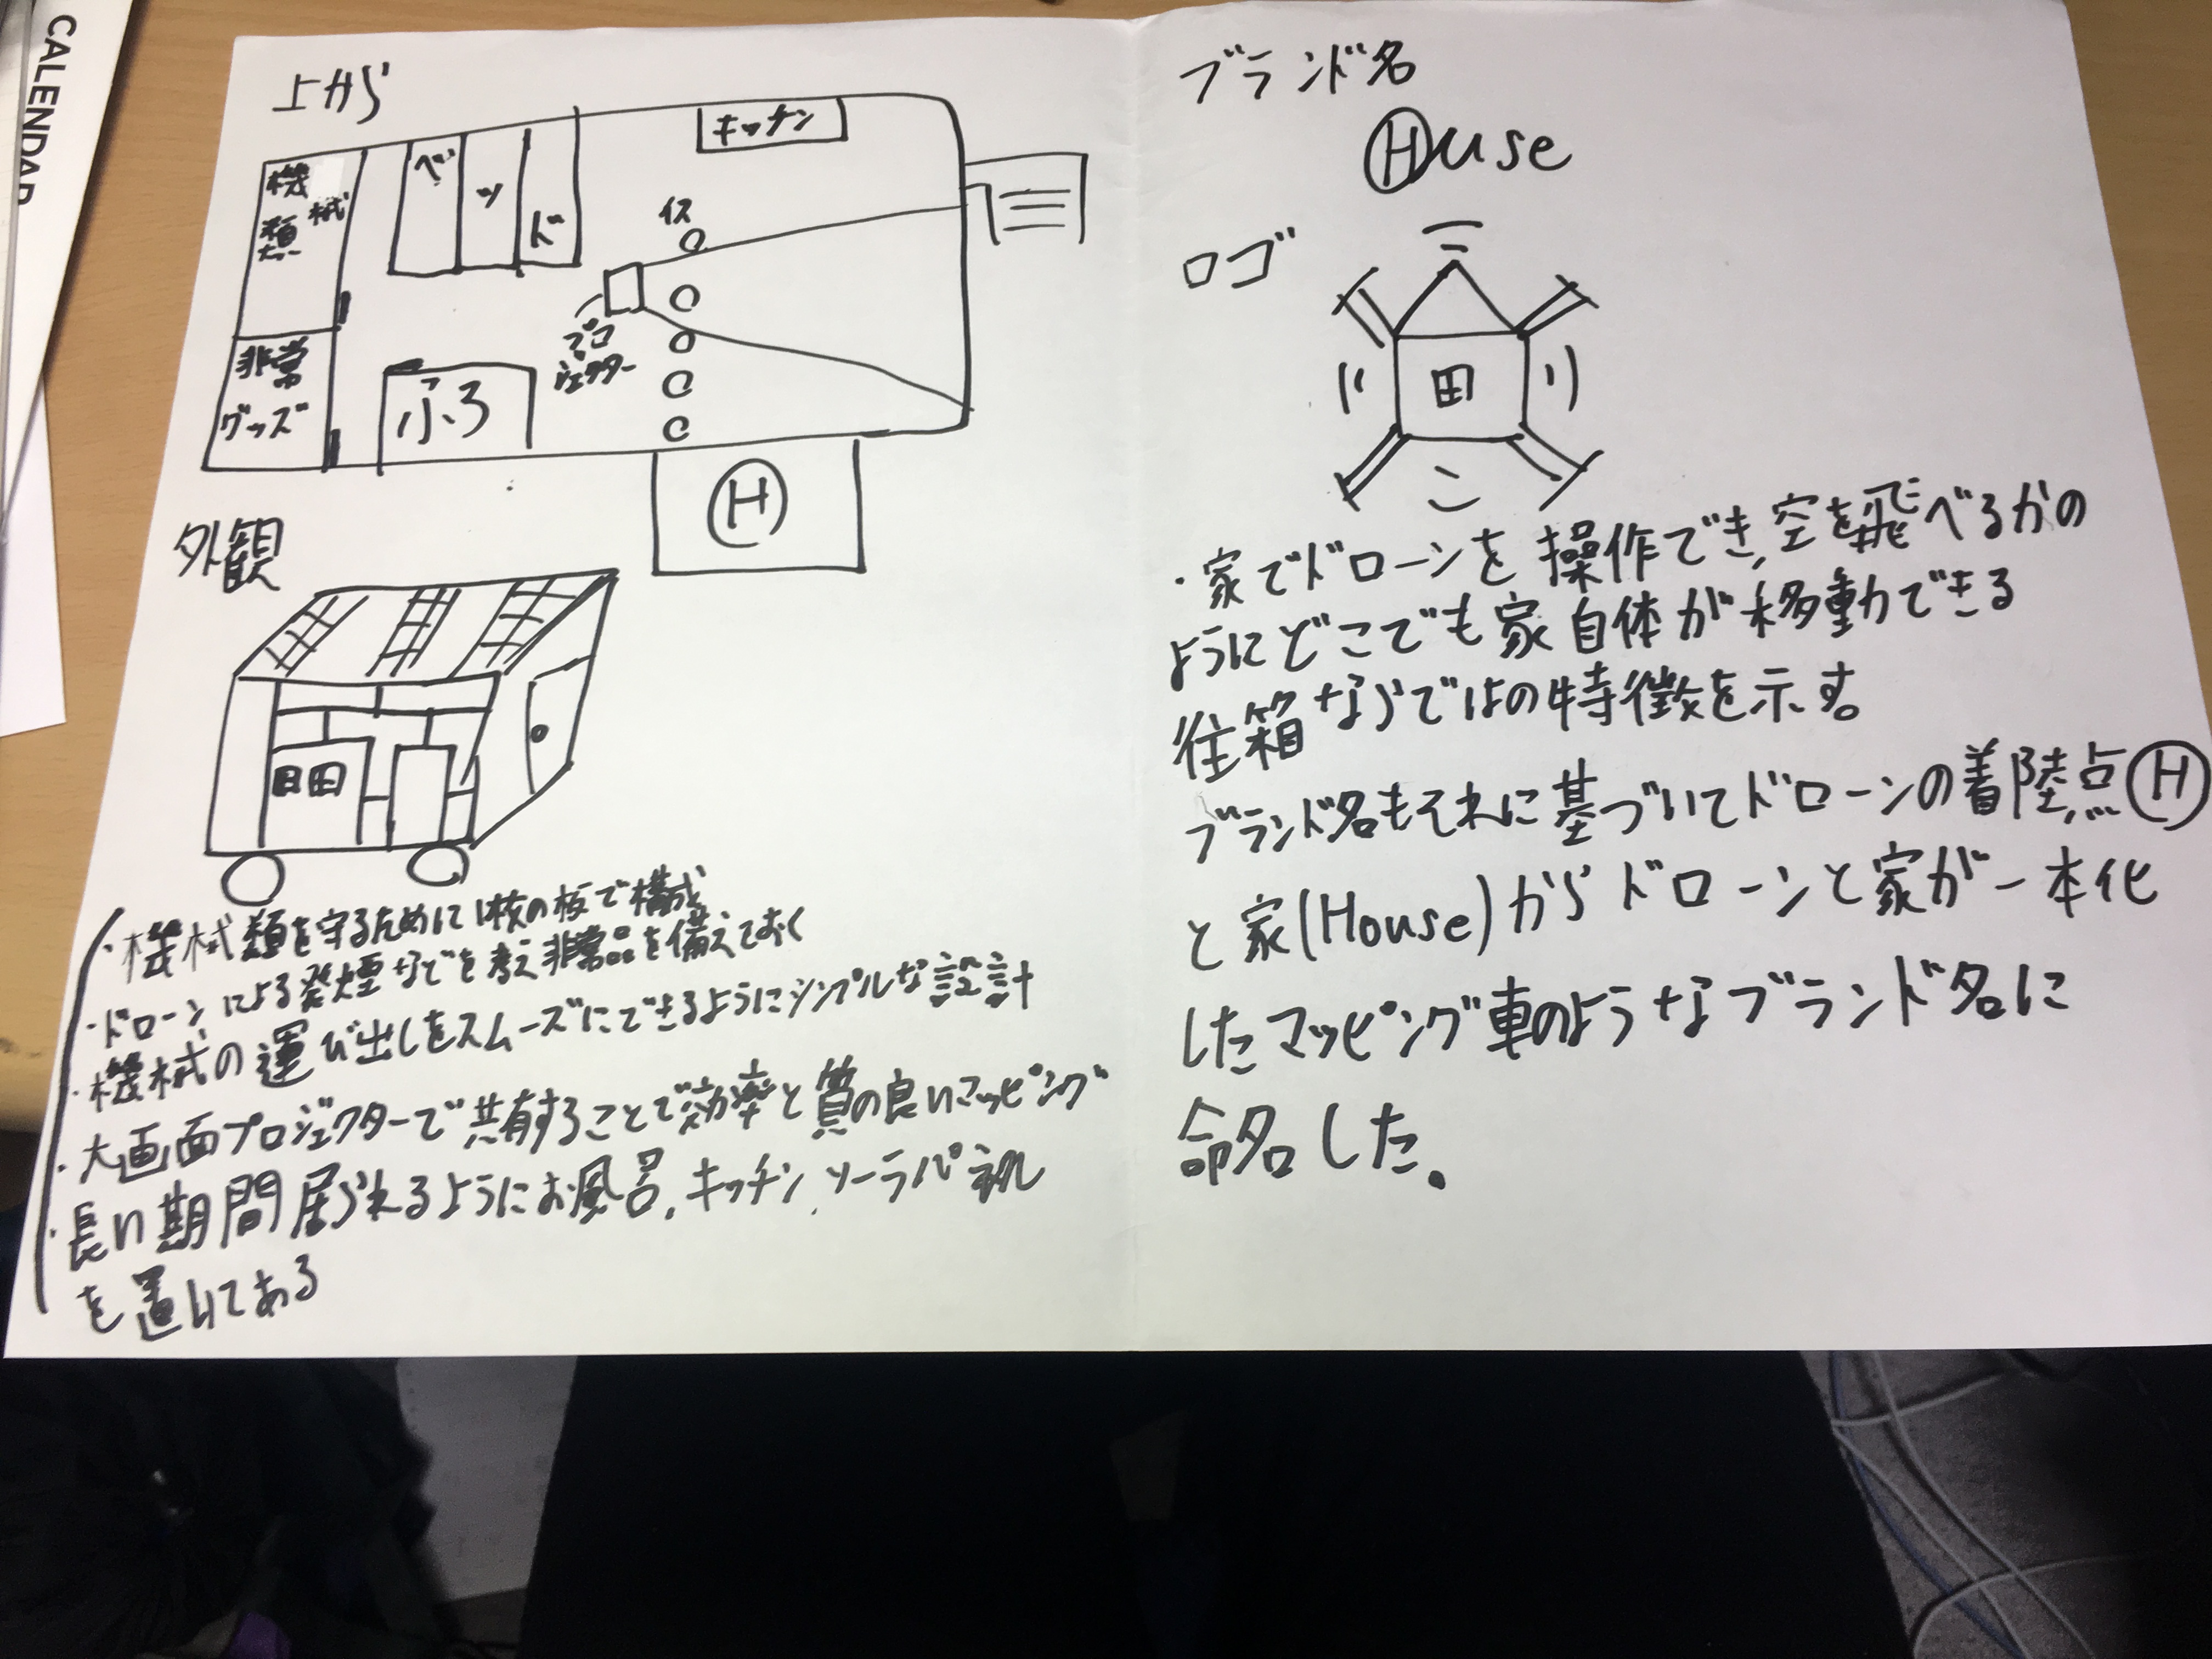 CALENDAR
上から
キッチン
機械類
ベッド
イス
プロジェクター
非常グッズ
ふろ
Ⓗ
外観
・機械類を守るために1枚の板で構成
・ドローンによる発煙などを考え非常品を備えておく
・機械の運び出しをスムーズにできるようにシンプルな設計
・大画面プロジェクターで共有することで効率と質の良いマッピング
・長い期間居られるようにお風呂、キッチン、ソーラパネル
を置いてある
ブランド名
Ⓗuse
ロゴ
・家でドローンを操作でき、空を飛べるかの
ようにどこでも家自体が移動できる
住箱ならではの特徴を示す。
ブランド名もそれに基づいてドローンの着陸点Ⓗ
と家(House)からドローンと家が一本化
したマッピング車のようなブランド名に
命名した。